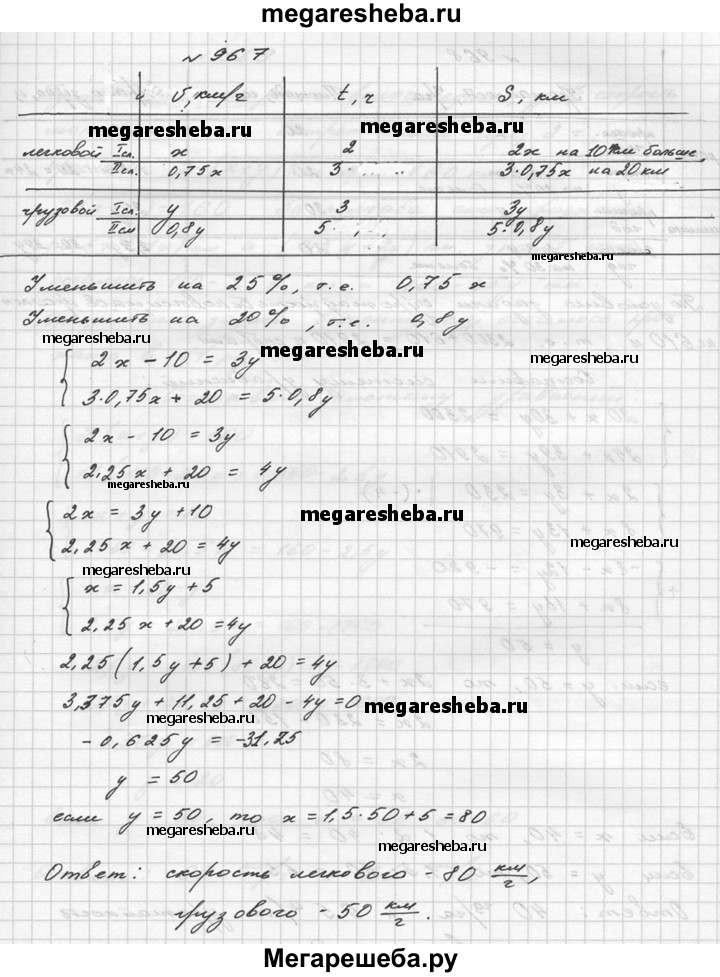 megaresheba.ru
№ 967
V, км/ч t, ч S, км
megaresheba.ru megaresheba.ru
легковой Iсл. x 2 2x на 10 км больше
IIсл. 0,75x 3 3·0,75x на 20 км
грузовой Iсл. y 3 3y
IIсл 0,8y 5 5·0,8y
megaresheba.ru
Уменьшить на 25%, т.е. 0,75x
Уменьшить на 20%, т.е. 0,8y
megaresheba.ru megaresheba.ru megaresheba.ru
2x - 10 = 3y
3·0,75x + 20 = 5·0,8y
2x - 10 = 3y
2,25x + 20 = 4y
megaresheba.ru
2x = 3y + 10
megaresheba.ru
2,25x + 20 = 4y
megaresheba.ru
x = 1,5y + 5
2,25x + 20 = 4y
2,25(1,5y + 5) + 20 = 4y
3,375y + 11,25 + 20 - 4y = 0
megaresheba.ru megaresheba.ru
- 0,625y = -31,25
y = 50
если y = 50, то x = 1,5·50 + 5 = 80
megaresheba.ru megaresheba.ru
Ответ: скорость легкового - 80 км/ч,
грузового - 50 км/ч.
Мегарешеба.ру